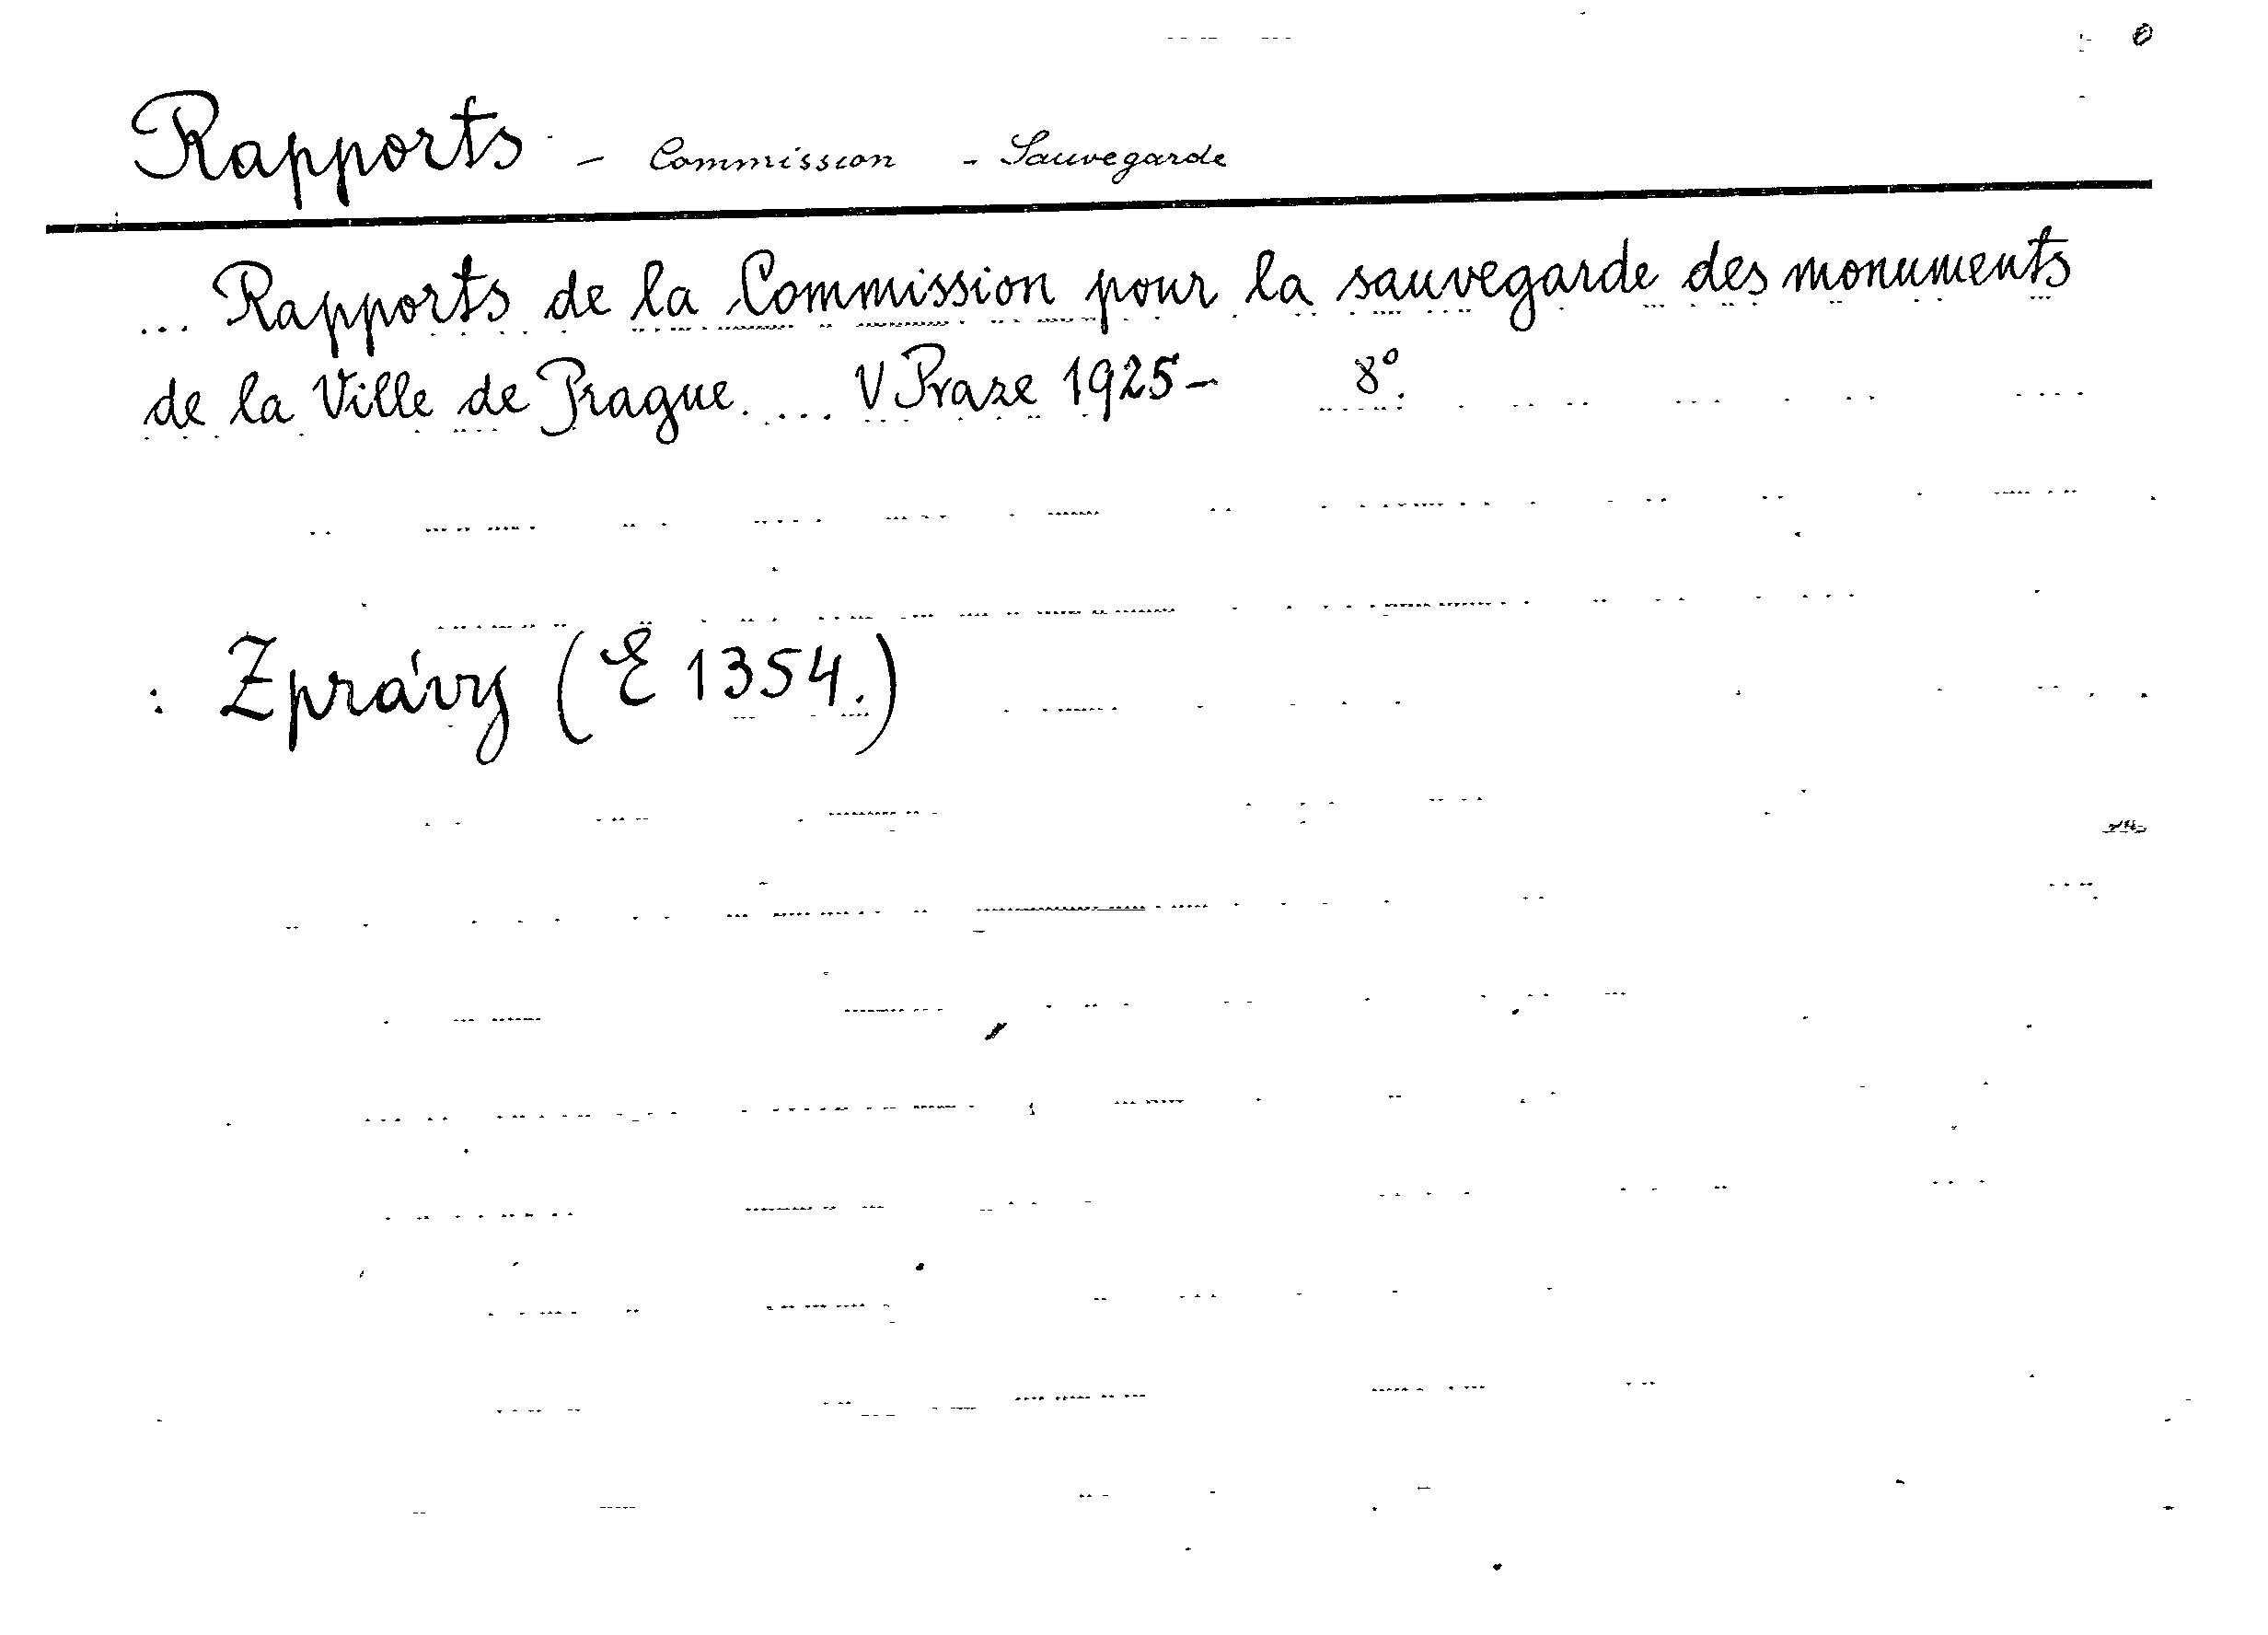 Rapports - Commission - Sauvegarde
... Rapports de la Commission pour la sauvegarde des monuments
de la Ville de Prague. ... V Praze 1925- 8°.
: Zprávy (E 1354.)